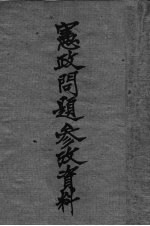 憲政問題參攷資料